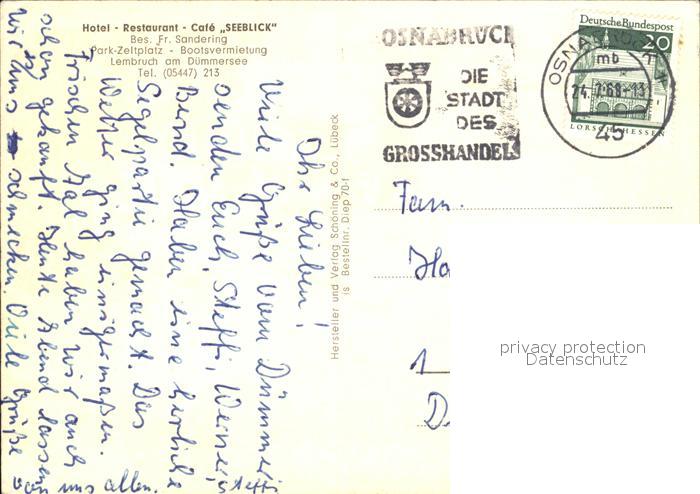 Hotel - Restaurant - Café „SEEBLICK"
Bes. Fr. Sandering
Park-Zeltplatz - Bootsvermietung
Lembruch am Dümmersee
Tel. (05447) 213
Ihr Lieben!
Viele Grüße vom Dümmer
senden Euch, Steffi, Werner,
Bernd. Haben eine herrliche
Segelpartie gemacht. Das
Wetter ging einigermaßen.
Frischen Aal haben wir auch
schon gekauft. Heute Abend lassen
wir uns schmecken. Viele Grüße
uns allen.
Steffi
Hersteller und Verlag Schöning & Co., Lübeck
Bestellnr. Diep 70-f
OSNABRÜCK
DIE
STADT
DES
GROSSHANDELS
OSNABRÜCK
mb
24.7.68-13
45
Deutsche Bundespost
20
LORSCH/HESSEN
Fam.
Ha
1
D
privacy protection
Datenschutz